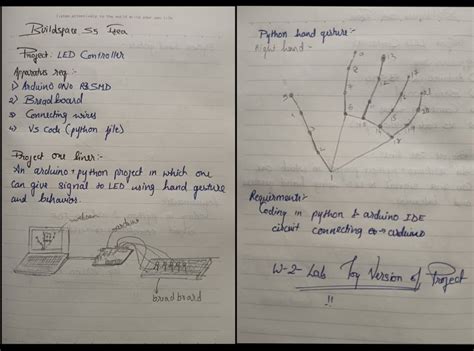 Buildspace S5 Idea
Project: LED Controller
Apparatus req :-
1) Arduino UNO R3SMD
2) Breadboard
3) Connecting wires
4) VS code (python file)
Project one liner:-
An arduino + python project in which one
can give signal to LED using hand gesture
and behavior.
arduino
breadboard
Python hand gesture:-
Right hand:-
Requirments:-
Coding in python & arduino IDE
circuit connecting to arduino
W-2- Lab Toy Version of Project
!!